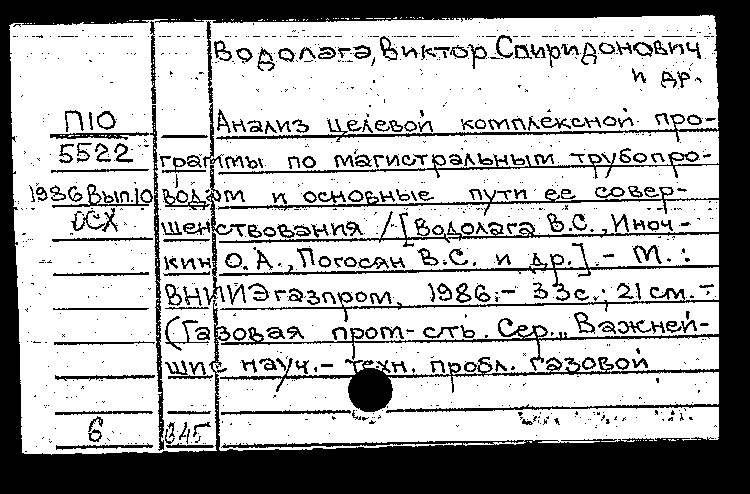 Водолага, Виктор Спиридонович
и др.
П10
5522
1986 Вып.10
ОСХ
Анализ целевой комплексной про-
граммы по магистральным трубопро-
водам и основные пути ее совер-
шенствования /[Водолага В.С., Иноч-
кин О.А., Погосян В.С. и др.]. - М. :
ВНИИЭгазпром, 1986. - 33 с.; 21 см. -
(Газовая пром-сть. Сер., Важней-
шие науч. - техн. пробл. газовой
6 345